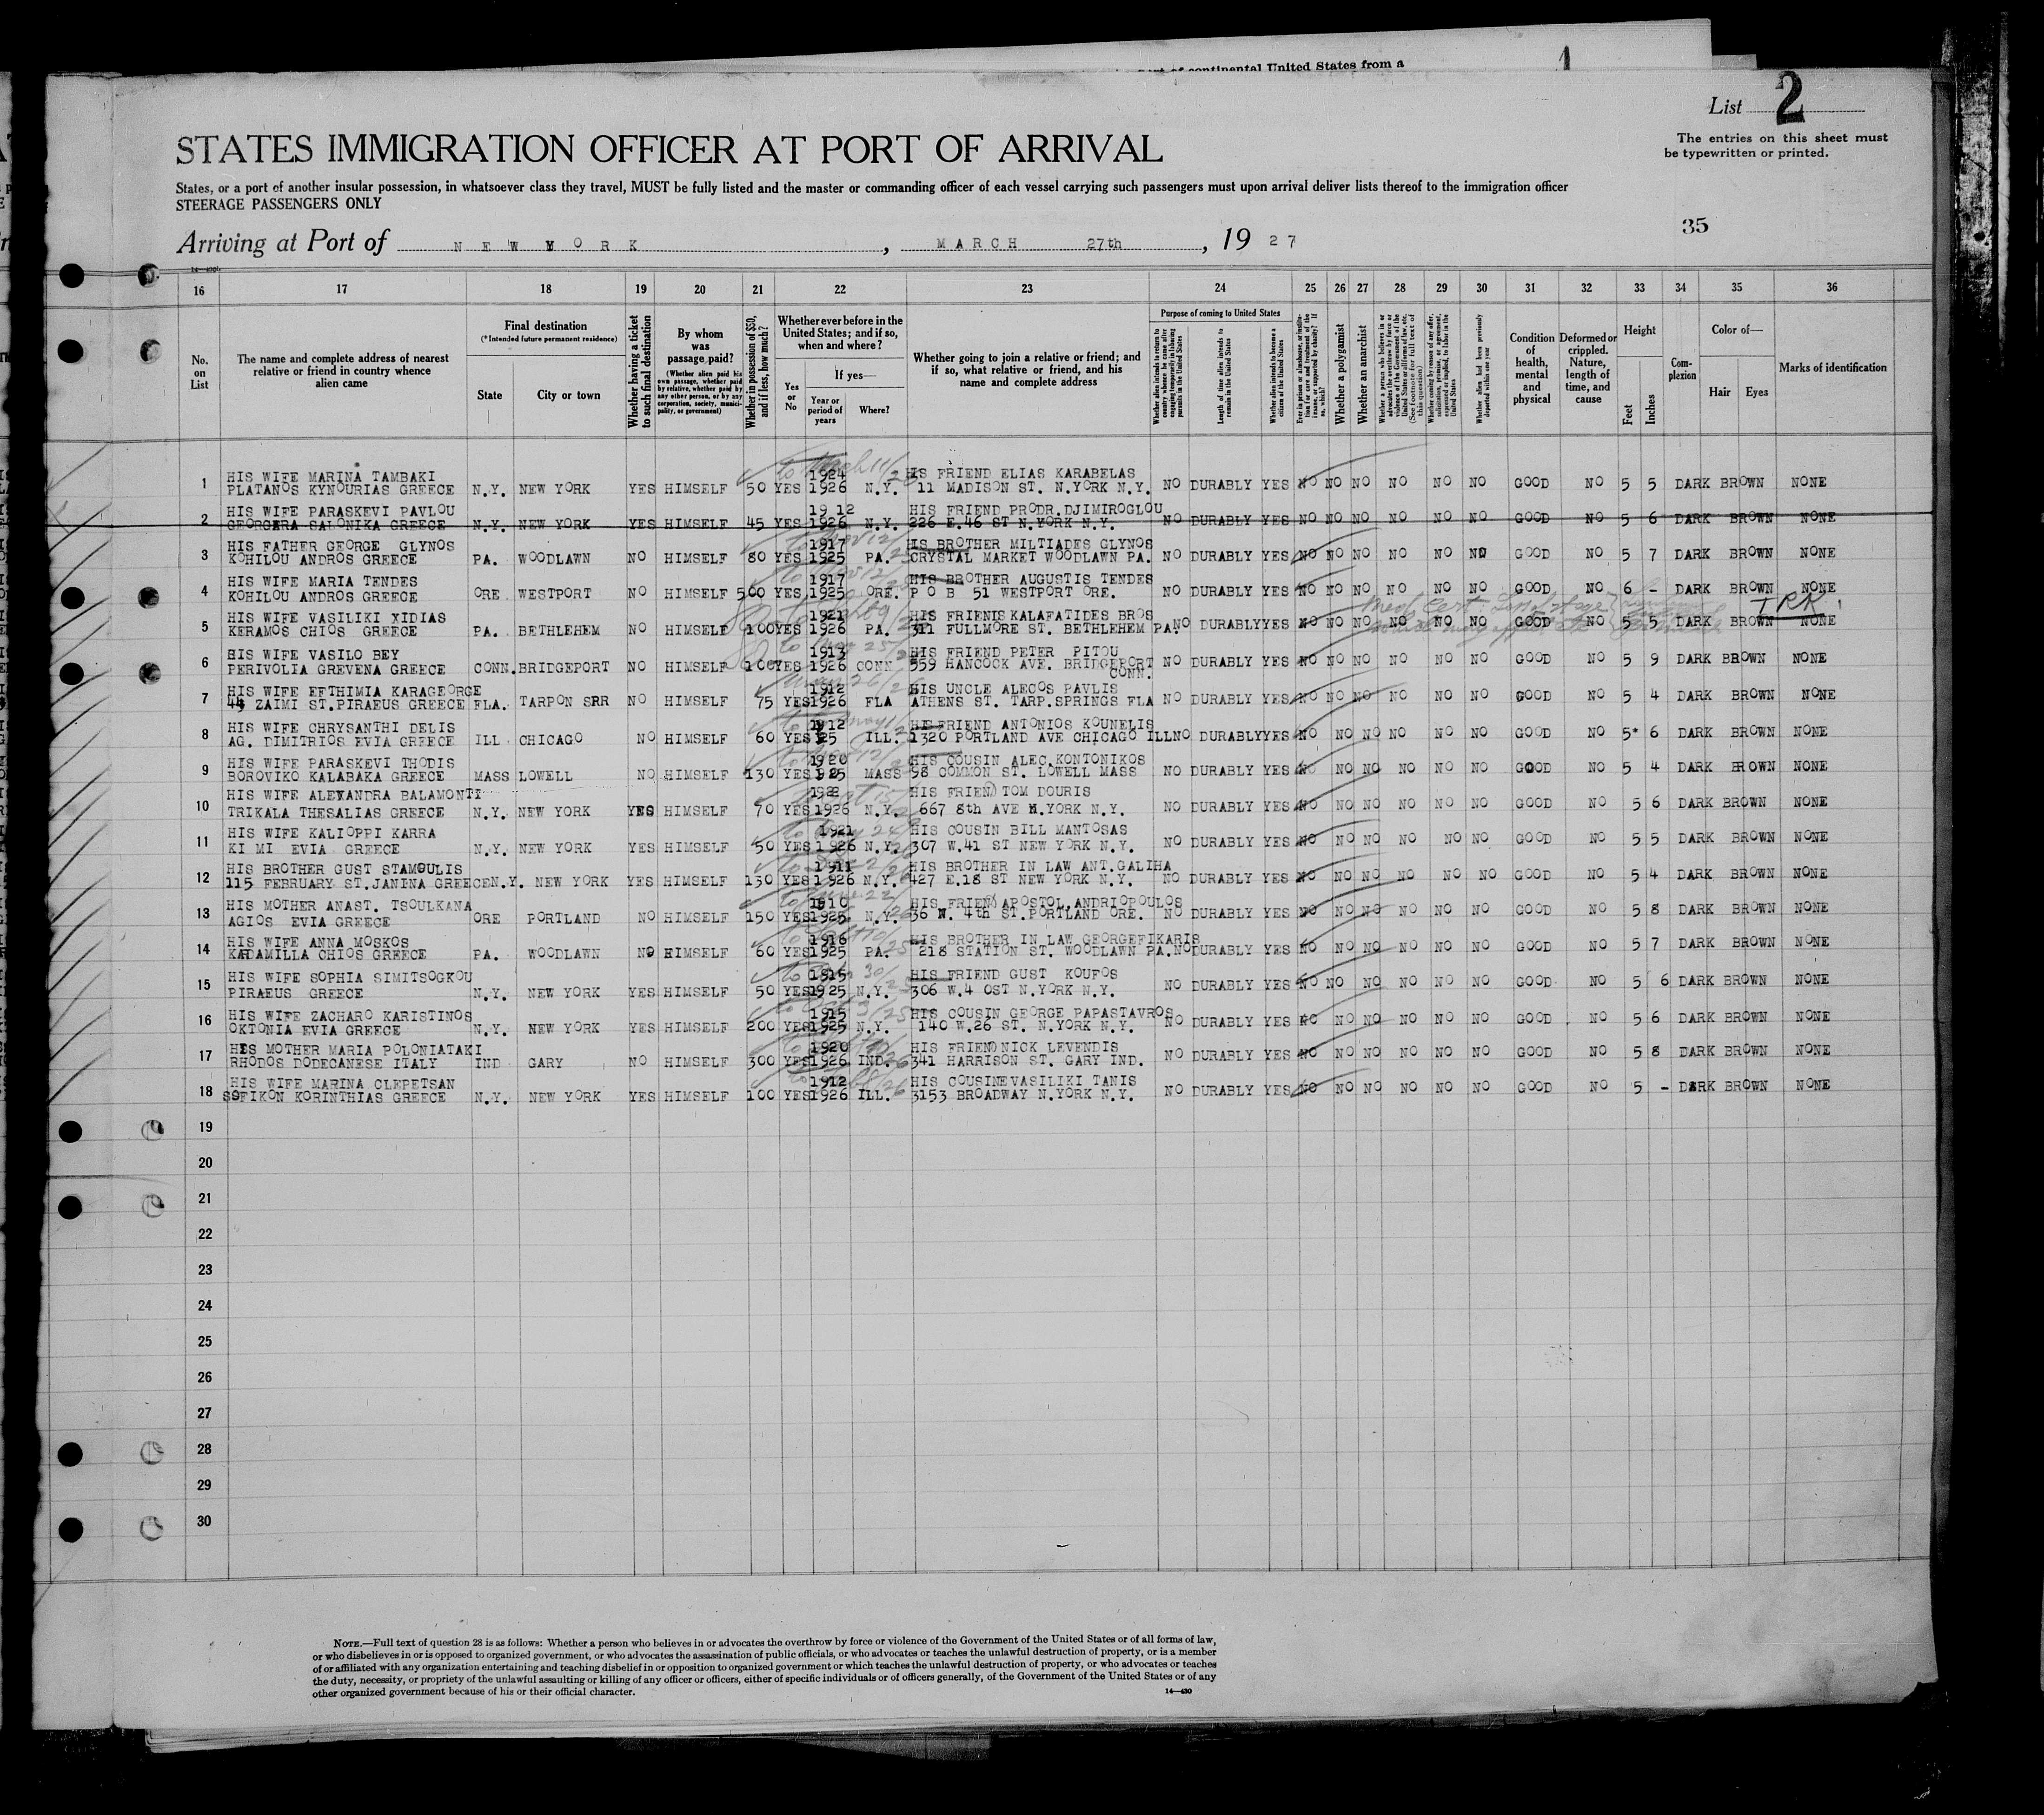 part of continental United States from a
1
List 2
The entries on this sheet must
be typewritten or printed.
STATES IMMIGRATION OFFICER AT PORT OF ARRIVAL
States, or a port of another insular possession, in whatsoever class they travel, MUST be fully listed and the master or commanding officer of each vessel carrying such passengers must upon arrival deliver lists thereof to the immigration officer
STEERAGE PASSENGERS ONLY
35
Arriving at Port of NEW YORK, MARCH 27th, 1927
16 17 18 19 20 21 22 23 24 25 26 27 28 29 30 31 32 33 34 35 36
No. on List
The name and complete address of nearest relative or friend in country whence alien came
Final destination
(*Intended future permanent residence)
State
City or town
Whether having a ticket to such final destination
By whom was passage paid?
(Whether alien paid his own passage, whether paid by relative, whether paid by any other person, or by any corporation, society, municipality, or government)
Whether in possession of $50, and if less, how much?
Whether ever before in the United States; and if so, when and where?
Yes or No
If yes—
Year or period of years
Where?
Whether going to join a relative or friend; and if so, what relative or friend, and his name and complete address
Purpose of coming to United States
Whether alien intends to return to country whence he came after engaging temporarily in laboring pursuits in the United States
Length of time alien intends to remain in the United States
Whether alien intends to become a citizen of the United States
Ever in prison or almshouse, or institution for care and treatment of the insane, or supported by charity? If so, which?
Whether a polygamist
Whether an anarchist
Whether a person who believes in or advocates the overthrow by force or violence of the Government of the United States or all forms of law, etc. (See footnote for full text of this question)
Whether coming by reason of any offer, solicitation, promise, or agreement, expressed or implied, to labor in the United States
Whether alien had been previously deported within one year
Condition of health, mental and physical
Deformed or crippled. Nature, length of time, and cause
Height
Feet
Inches
Complexion
Color of—
Hair
Eyes
Marks of identification
HIS WIFE MARINA TAMBAKI 1924 HIS FRIEND ELIAS KARABELAS
1 PLATANOS KYNOURIAS GREECE N.Y. NEW YORK YES HIMSELF 50 YES 1926 N.Y. 11 MADISON ST. N.YORK N.Y. NO DURABLY YES NO NO NO NO NO NO GOOD NO 5 5 DARK BROWN NONE
HIS WIFE PARASKEVI PAVLOU 1912 HIS FRIEND PRODR.DJIMIROGLOU
2 GEORGERA SALONIKA GREECE N.Y. NEW YORK YES HIMSELF 45 YES 1926 N.Y. 226 E.46 ST N.YORK N.Y. NO DURABLY YES NO NO NO NO NO NO GOOD NO 5 6 DARK BROWN NONE
HIS FATHER GEORGE GLYNOS 1917 HIS BROTHER MILTIADES GLYNOS
3 KOHILOU ANDROS GREECE PA. WOODLAWN NO HIMSELF 80 YES 1925 PA. CRYSTAL MARKET WOODLAWN PA. NO DURABLY YES NO NO NO NO NO NO GOOD NO 5 7 DARK BROWN NONE
HIS WIFE MARIA TENDES 1917 HIS BROTHER AUGUSTIS TENDES
4 KOHILOU ANDROS GREECE ORE WESTPORT NO HIMSELF 500 YES 1925 ORE. P O B 51 WESTPORT ORE. NO DURABLY YES NO NO NO NO NO NO GOOD NO 6 - DARK BROWN NONE
HIS WIFE VASILIKI XIDIAS 1921 HIS FRIENIS KALAFATIDES BROS
5 KERAMOS CHIOS GREECE PA. BETHLEHEM NO HIMSELF 100 YES 1926 PA. 311 FULLMORE ST. BETHLEHEM PA. NO DURABLY YES NO NO NO NO NO NO GOOD NO 5 5 DARK BROWN NONE
HIS WIFE VASILO BEY 1913 HIS FRIEND PETER PITOU
6 PERIVOLIA GREVENA GREECE CONN. BRIDGEPORT NO HIMSELF 100 YES 1926 CONN 559 HANCOCK AVE. BRIDGEPORT CONN. NO DURABLY YES NO NO NO NO NO NO GOOD NO 5 9 DARK BROWN NONE
HIS WIFE EFTHIMIA KARAGEORGE 1912 HIS UNCLE ALECOS PAVLIS
7 ZAIMI ST.PIRAEUS GREECE FLA. TARPON SRR NO HIMSELF 75 YES 1926 FLA ATHENS ST. TARP.SPRINGS FLA NO DURABLY YES NO NO NO NO NO NO GOOD NO 5 4 DARK BROWN NONE
HIS WIFE CHRYSANTHI DELIS 1912 HIS FRIEND ANTONIOS KOUNELIS
8 AG. DIMITRIOS EVIA GREECE ILL CHICAGO NO HIMSELF 60 YES 25 ILL. 1320 PORTLAND AVE CHICAGO ILL NO DURABLY YES NO NO NO NO NO NO GOOD NO 5 6 DARK BROWN NONE
HIS WIFE PARASKEVI THODIS 1920 HIS COUSIN ALEC.KONTONIKOS
9 BOROVIKO KALABAKA GREECE MASS LOWELL NO HIMSELF 130 YES 1925 MASS 98 COMMON ST. LOWELL MASS NO DURABLY YES NO NO NO NO NO NO GOOD NO 5 4 DARK BROWN NONE
HIS WIFE ALEXANDRA BALAMONTI 1922 HIS FRIEND TOM DOURIS
10 TRIKALA THESALIAS GREECE N.Y. NEW YORK YES HIMSELF 70 YES 1926 N.Y. 667 8th AVE N.YORK N.Y. NO DURABLY YES NO NO NO NO NO NO GOOD NO 5 6 DARK BROWN NONE
HIS WIFE KALIOPPI KARRA 1921 HIS COUSIN BILL MANTOSAS
11 KI MI EVIA GREECE N.Y. NEW YORK YES HIMSELF 50 YES 1926 N.Y. 307 W.41 ST NEW YORK N.Y. NO DURABLY YES NO NO NO NO NO NO GOOD NO 5 5 DARK BROWN NONE
HIS BROTHER GUST STAMOULIS 1911 HIS BROTHER IN LAW ANT.GALIHA
12 115 FEBRUARY ST.JANINA GREECE N.Y. NEW YORK YES HIMSELF 130 YES 1926 N.Y. 427 E.18 ST NEW YORK N.Y. NO DURABLY YES NO NO NO NO NO NO GOOD NO 5 4 DARK BROWN NONE
HIS MOTHER ANAST. TSOULKANA 1910 HIS FRIEND APOSTOL.ANDRIOPOULOS
13 AGIOS EVIA GREECE ORE PORTLAND NO HIMSELF 150 YES 1925 N.Y. 36 N. 4th ST.PORTLAND ORE. NO DURABLY YES NO NO NO NO NO NO GOOD NO 5 8 DARK BROWN NONE
HIS WIFE ANNA MOSKOS 1916 HIS BROTHER IN LAW GEORGEFIKARIS
14 KADAMILLA CHIOS GREECE PA. WOODLAWN NO HIMSELF 60 YES 1925 PA. 218 STATION ST. WOODLAWN PA. NO DURABLY YES NO NO NO NO NO NO GOOD NO 5 7 DARK BROWN NONE
HIS WIFE SOPHIA SIMITSOGKOU 1915 HIS FRIEND GUST KOUFOS
15 PIRAEUS GREECE N.Y. NEW YORK YES HIMSELF 50 YES 1925 N.Y. 306 W.4 OST N.YORK N.Y. NO DURABLY YES NO NO NO NO NO NO GOOD NO 5 6 DARK BROWN NONE
HIS WIFE ZACHARO KARISTINOS 1915 HIS COUSIN GEORGE PAPASTAVROS
16 OKTONIA EVIA GREECE N.Y. NEW YORK YES HIMSELF 200 YES 1925 N.Y. 140 W.26 ST. N.YORK N.Y. NO DURABLY YES NO NO NO NO NO NO GOOD NO 5 6 DARK BROWN NONE
HIS MOTHER MARIA POLONIATAKI 1920 HIS FRIEND NICK LEVENDIS
17 RHODOS DODECANESE ITALY IND GARY NO HIMSELF 300 YES 1926 IND. 341 HARRISON ST. GARY IND. NO DURABLY YES NO NO NO NO NO NO GOOD NO 5 8 DARK BROWN NONE
HIS WIFE MARINA CLEPETSAN 1912 HIS COUSINEVASILIKI TANIS
18 SOFIKON KORINTHIAS GREECE N.Y. NEW YORK YES HIMSELF 100 YES 1926 ILL. 3153 BROADWAY N.YORK N.Y. NO DURABLY YES NO NO NO NO NO NO GOOD NO 5 - DARK BROWN NONE
19
20
21
22
23
24
25
26
27
28
29
30
NOTE.—Full text of question 28 is as follows: Whether a person who believes in or advocates the overthrow by force or violence of the Government of the United States or of all forms of law,
or who disbelieves in or is opposed to organized government, or who advocates the assassination of public officials, or who advocates or teaches the unlawful destruction of property, or is a member
of or affiliated with any organization entertaining and teaching disbelief in or opposition to organized government or which teaches the unlawful destruction of property, or who advocates or teaches
the duty, necessity, or propriety of the unlawful assaulting or killing of any officer or officers, either of specific individuals or of officers generally, of the Government of the United States or of any
other organized government because of his or their official character.
14—430